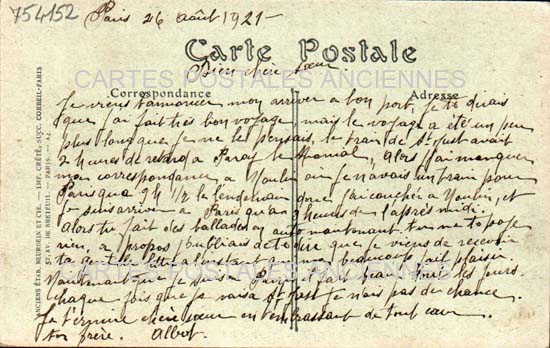 754152
Paris 26 Août 1921-
Carte Postale
Bien chère sœur
CARTES POSTALES ANCIENNES
Correspondance
Adresse
Je viens t'annoncer mon arriver a bon port, je te dirais
que j'ai fait très bon voyage mais le voyage a été un peu
plus long que je ne le pensais, le train de St Just avait
2 heures de retard a Paray le Monial, alors j'ai manquer
ma correspondance a Moulin je n'avais un train pour
Paris qu'a 9 h 1/2 le lendemain donc j'ai couchée a Moulin, et
je suis arriver a Paris qu'an 3 heures de l'après midi.
Alors tu fait des ballades en auto maintenant. tu ne te pose
rien, a propos j'oubliais de te dire que je viens de recevoir
ta lettre a l'instant qui m'a beaucoup fait plaisir.
CARTES POSTALES ANCIENNES
Maintenant que je suis a Paris il fait beau tout les jours.
chaque fois que je vais a St Just je n'ais pas de chance.
Je termine chère sœur en t'embrassant de tout cœur
ton frère. Albert.
ANCIENS ÉTAB. NEURDEIN ET CIE. — IMP. CRÉTÉ, SUCC. CORBEIL-PARIS
57, AV. DE BRETEUIL — PARIS.